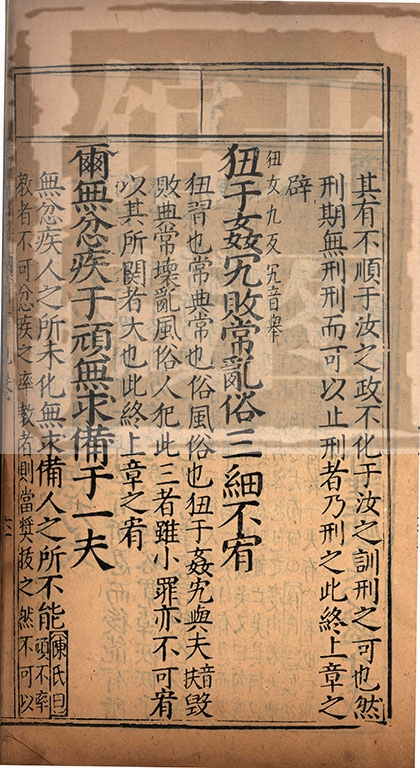 其有不順于汝之政不化于汝之訓刑之可也然
刑期無刑刑而可以止刑者乃刑之此終上章之
辟
狃女九反宄音軌
狃于姦宄敗常亂俗三細不宥
狃習也常典常也俗風俗也狃于姦宄與夫音扶毀
敗典常壞亂風俗人犯此三者雖小罪亦不可宥
以其所關者大也此終上章之宥
爾無忿疾于頑無求備于一夫
無忿疾人之所未化無求備人之所不能陳氏曰頑不率
教者不可忿疾之率教者則當奬拔之然不可以